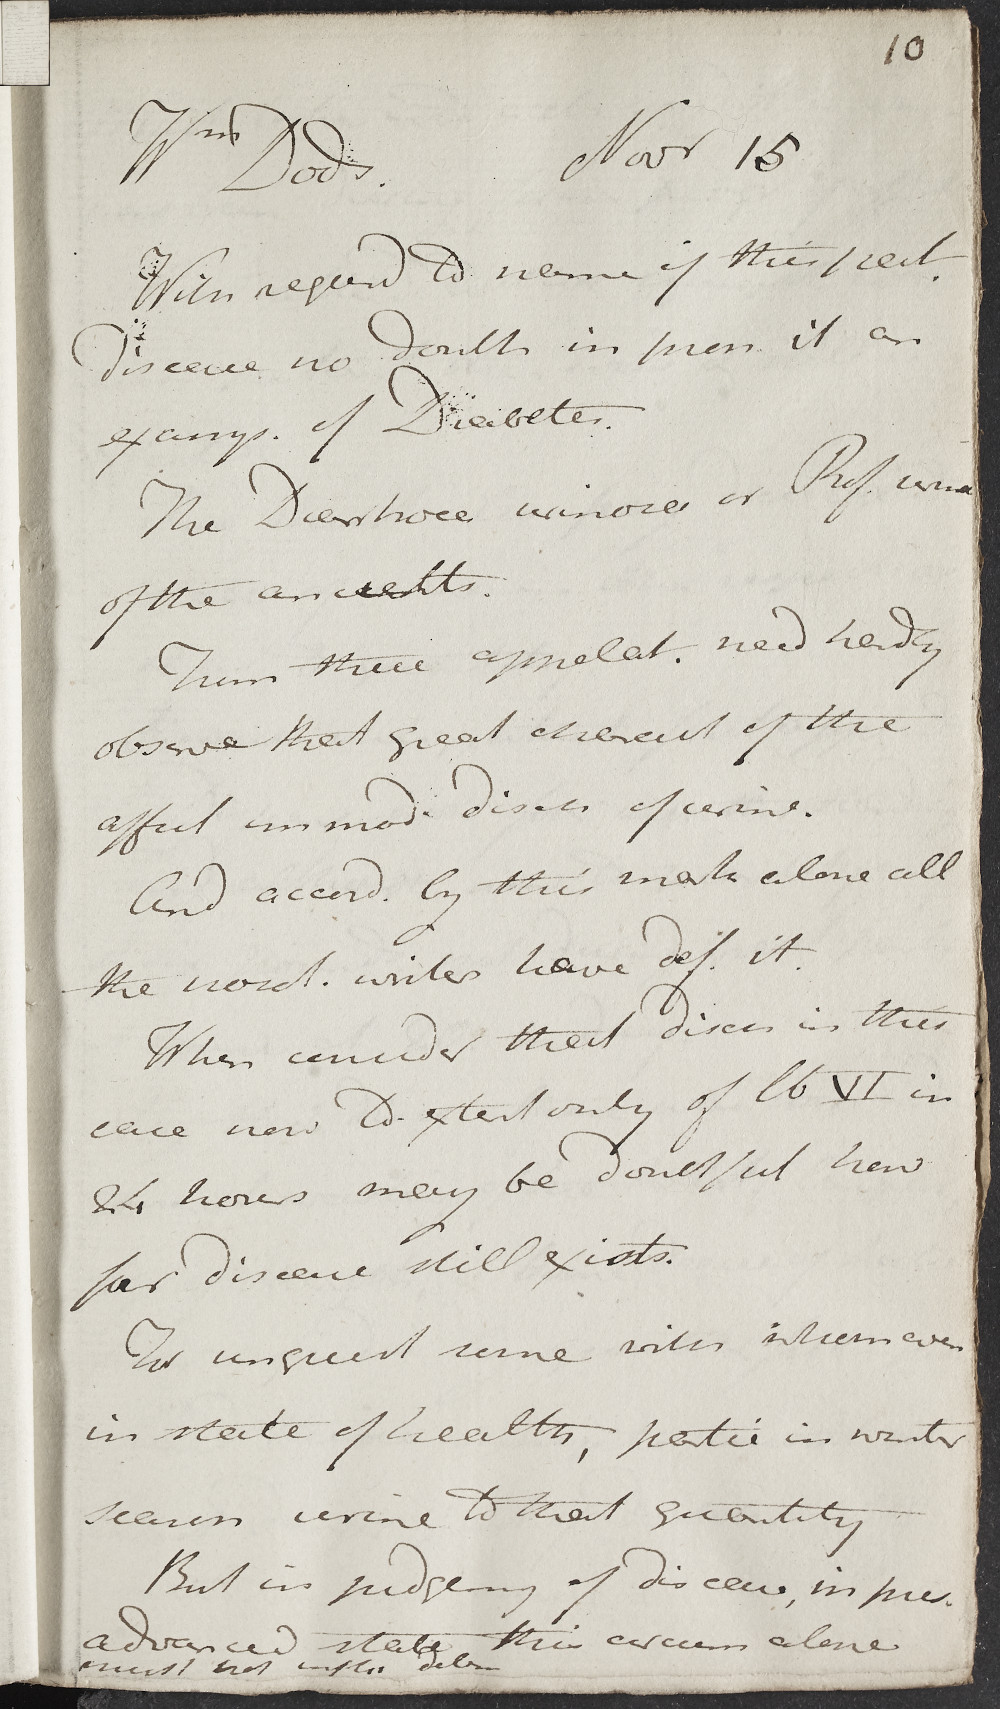 10
Wm Dods. Novr 15
With regard to name of this pat.
Disease no doubt in pron. it an
examp. of Diabetes.
The Diarrhoea urinosa or Prof. urina
of the ancients.
From these appelat. need hardly
observe that great charact of the
affect immod. disch of urine.
And accord. by this mark alone all
the nosol. writers have def. it.
When consider that disch in this
case now to extent only of lb VI in
24 hours may be doubtful how
far disease still exists.
For unquest some with whom even
in state of health, partic in winter
season urine to that quantity
But in judgeing of disease, in pres.
advanced state this circum alone
must not